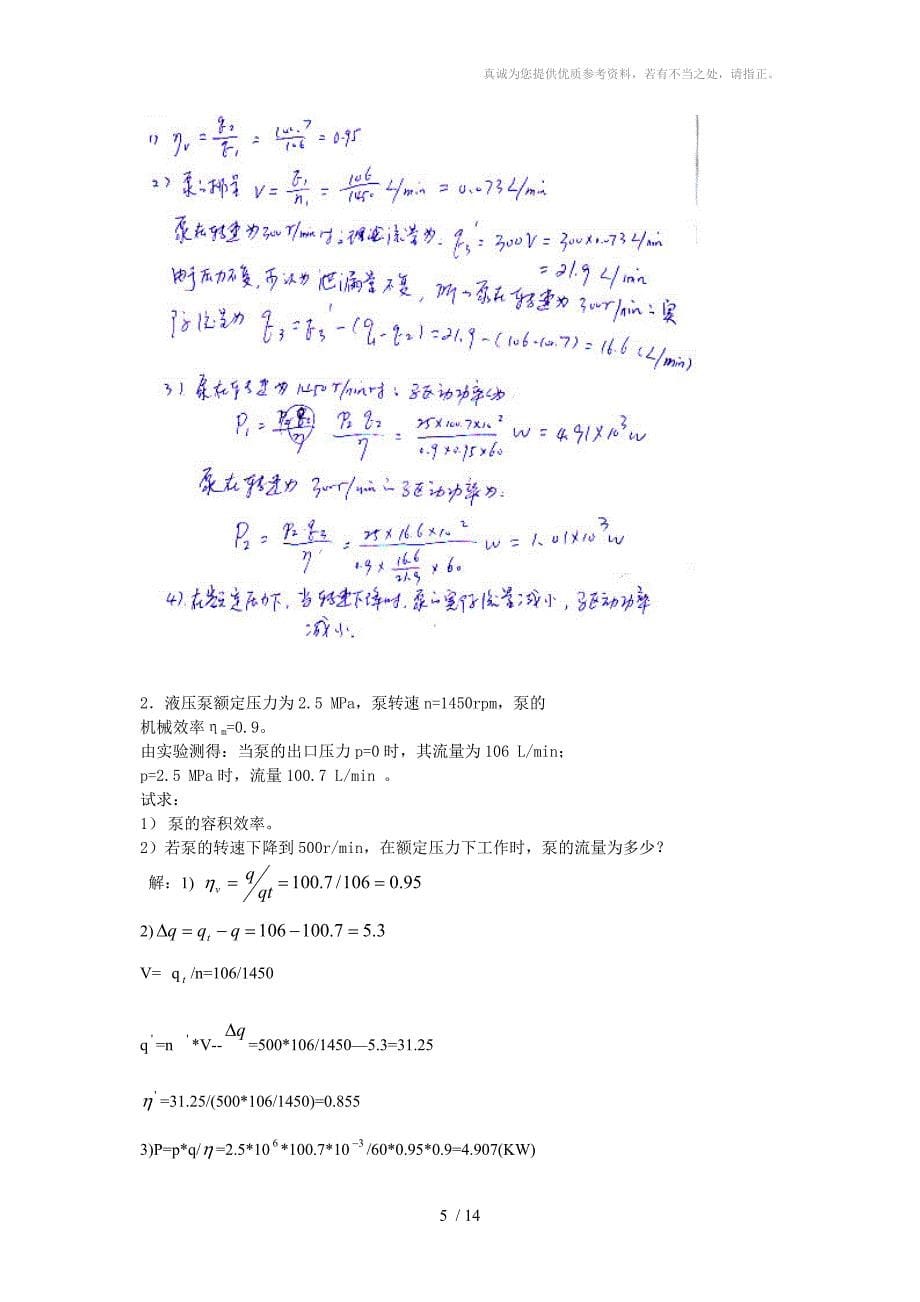 真诚为您提供优质参考资料，若有不当之处，请指正。
1) ηv = q2/q1 = 100.7/106 = 0.95
2) 泵的排量 V = q1/n1 = 106/1450 L/min = 0.073 L/min
泵在转速为300r/min时的理论流量为. q3' = 300V = 300×0.073 L/min
= 21.9 L/min
由于压力不变, 可认为泄漏量不变, 所以泵在转速为300r/min的实
际流量为 q3 = q3' - (q1-q2) = 21.9 - (106-100.7) = 16.6 (L/min)
3) 泵在转速为1450r/min时的驱动功率为:
P1 = P2 q2/η = 25×100.7×10²/0.9×0.95×60 W = 4.91×10³ W
泵在转速为300r/min的驱动功率为:
P2 = P2·q3/η' = 25×16.6×10²/0.9×16.6/21.9×60 W = 1.01×10³ W
4). 在额定压力下, 当转速下降时, 泵的实际流量减小, 驱动功率
减小.
2．液压泵额定压力为 2.5 MPa，泵转速 n=1450rpm，泵的
机械效率 ηm=0.9。
由实验测得：当泵的出口压力 p=0 时，其流量为 106 L/min；
p=2.5 MPa 时，流量 100.7 L/min 。
试求：
1） 泵的容积效率。
2）若泵的转速下降到 500r/min，在额定压力下工作时，泵的流量为多少？
解：1) ηv = q/qt = 100.7/106 = 0.95
2) Δq = qt − q = 106 − 100.7 = 5.3
V= qt /n=106/1450
q'=n '*V--Δq=500*106/1450—5.3=31.25
η'=31.25/(500*106/1450)=0.855
3)P=p*q/η=2.5*10⁶*100.7*10⁻³/60*0.95*0.9=4.907(KW)
5 / 14